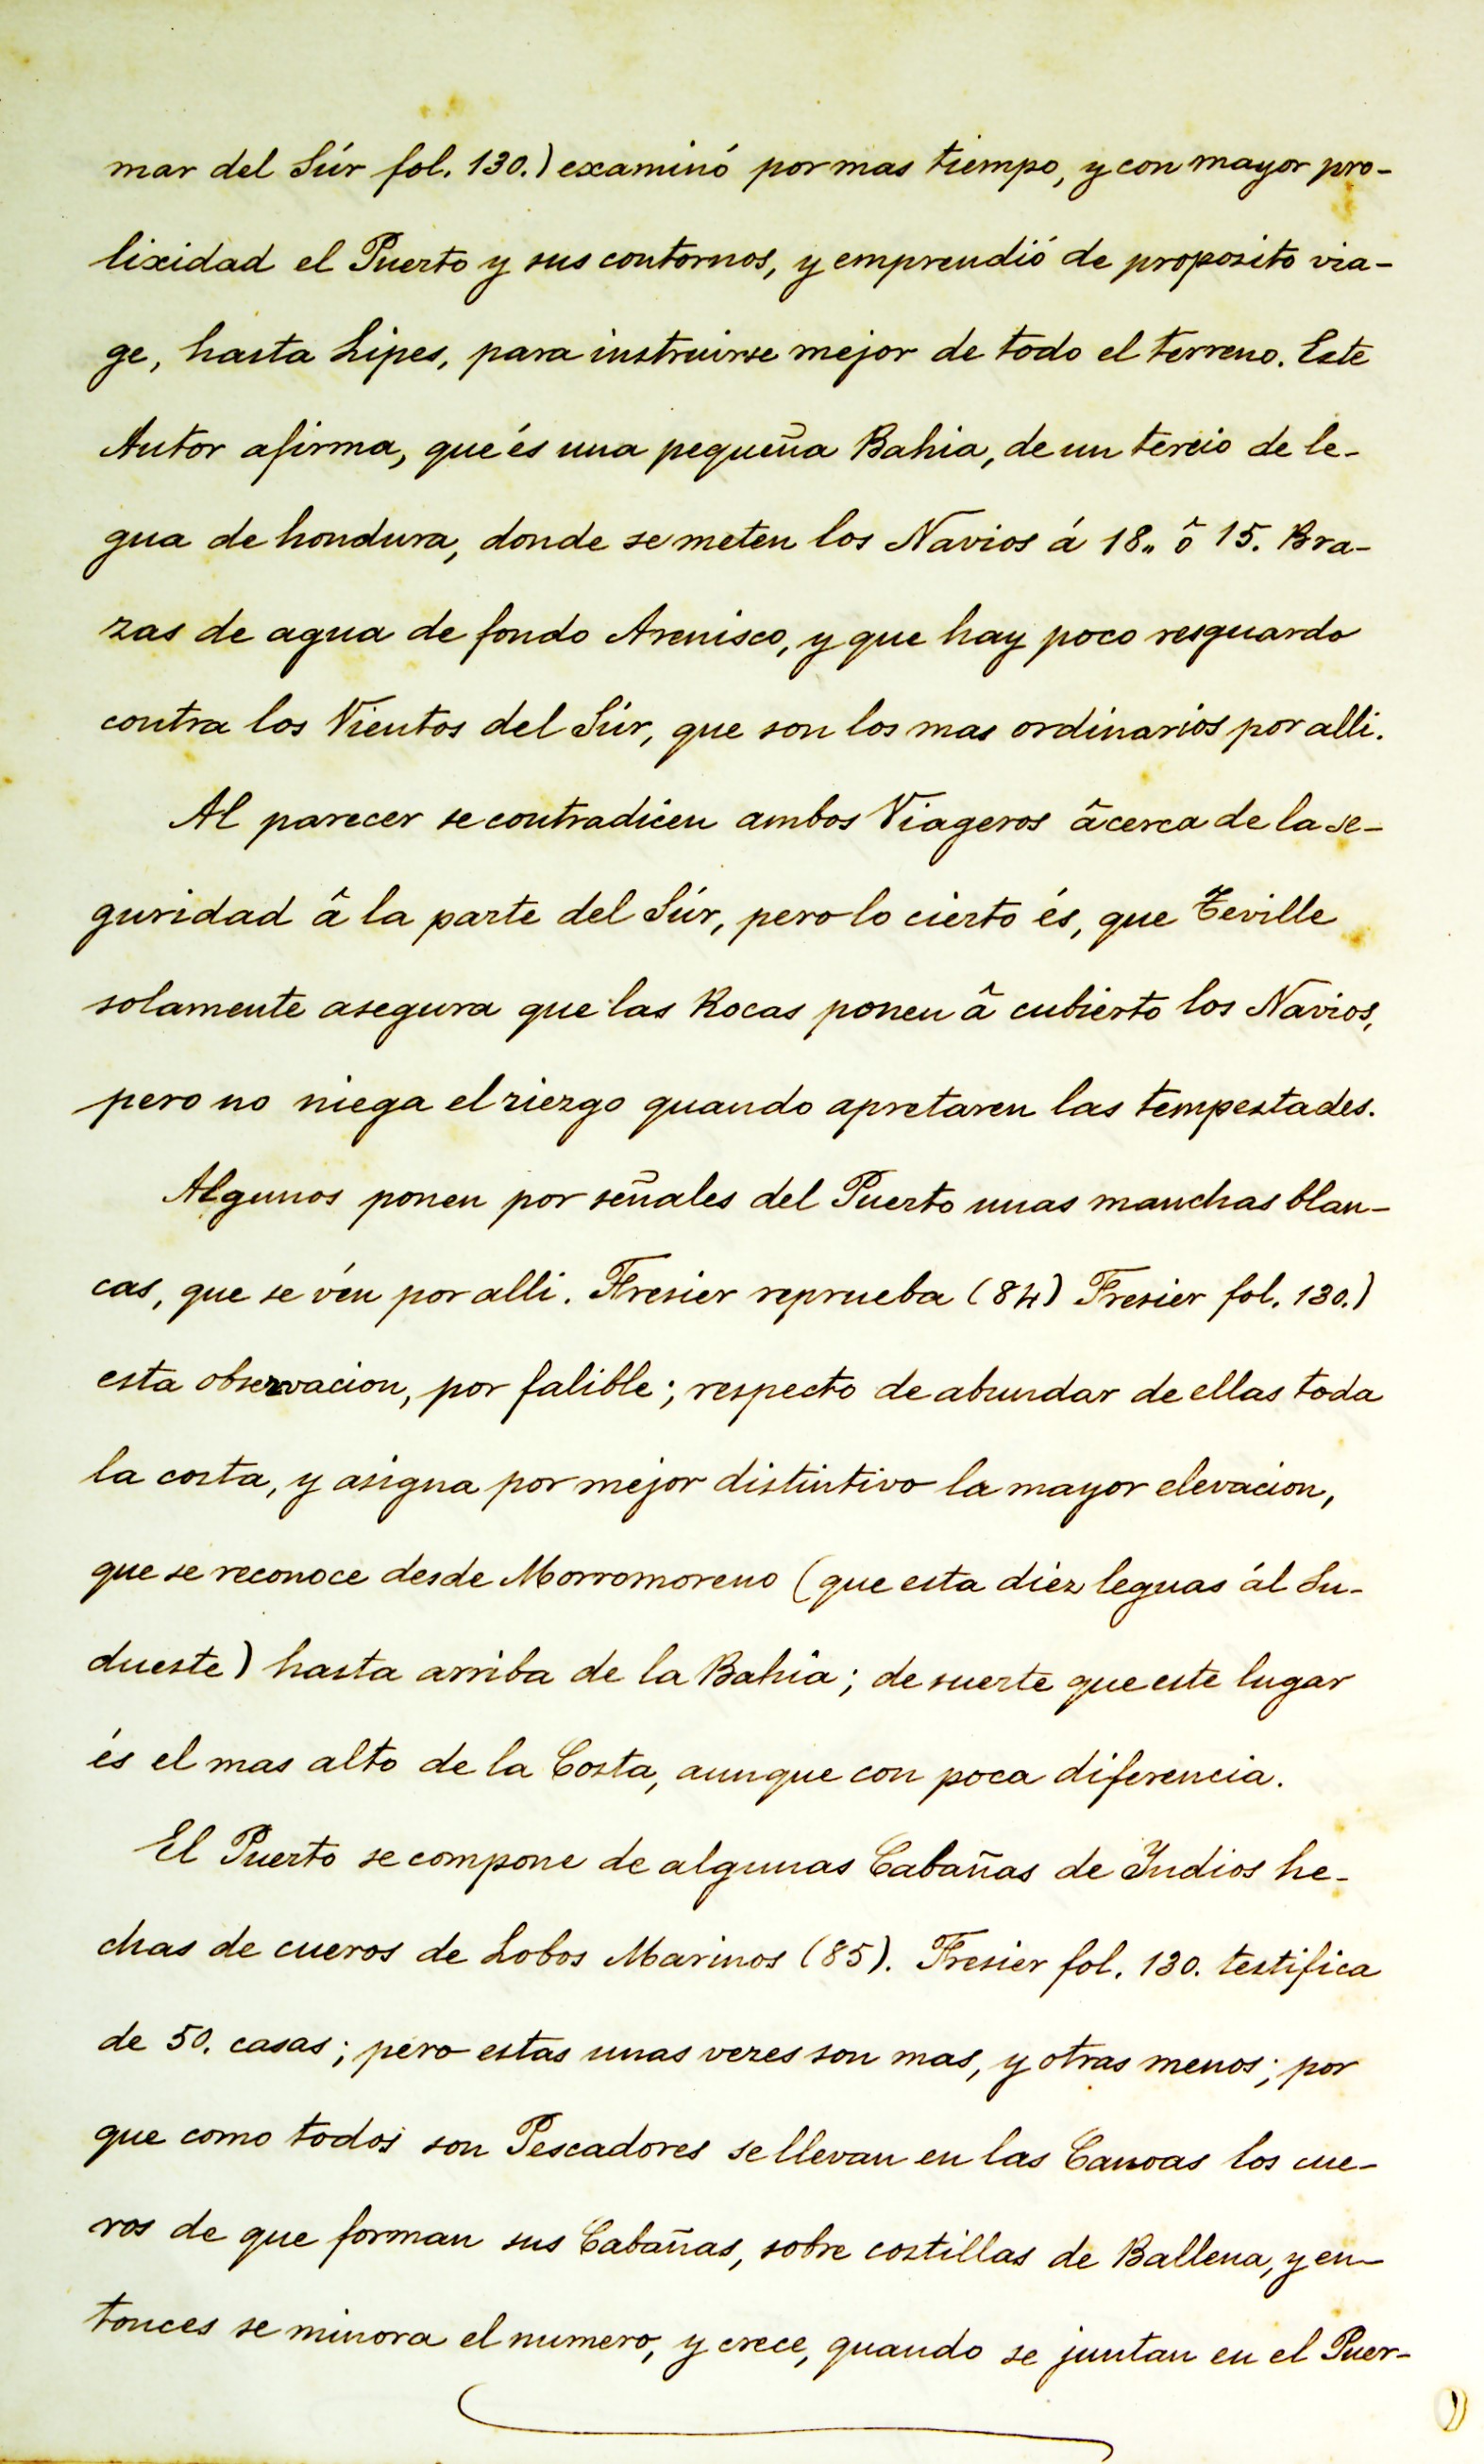 mar del Súr fol. 130.) examinó por mas tiempo, y con mayor pro-
lixidad el Puerto y sus contornos, y emprendió de proposito via-
ge, hasta Lipes, para instruirse mejor de todo el terreno. Este
Autor afirma, que és una pequeña Bahia, de un tercio de le-
gua de hondura, donde se meten los Navios á 18,, ô 15. Bra-
zas de agua de fondo Arenisco, y que hay poco resguardo
contra los Vientos del Súr, que son los mas ordinarios por alli.
Al parecer se contradicen ambos Viageros âcerca de la se-
guridad â la parte del Súr, pero lo cierto és, que Feville
solamente asegura que las Rocas ponen â cubierto los Navios,
pero no niega el riezgo quando apretaren las tempestades.
Algunos ponen por señales del Puerto unas manchas blan-
cas, que se vén por alli. Fresier reprueba (84) Fresier fol. 130.)
esta observacion, por falible; respecto de abundar de ellas toda
la costa, y asigna por mejor distintivo la mayor elevacion,
que se reconoce desde Morromoreno (que esta diez leguas ál Su-
dueste) hasta arriba de la Bahia; de suerte que este lugar
és el mas alto de la Costa, aunque con poca diferencia.
El Puerto se compone de algunas Cabañas de Yndios he-
chas de cueros de Lobos Marinos (85). Fresier fol. 130. testifica
de 50. casas; pero estas unas vezes son mas, y otras menos; por
que como todos son Pescadores se llevan en las Canoas los cue-
ros de que forman sus Cabañas, sobre costillas de Ballena, y en-
tonces se minora el numero, y crece, quando se juntan en el Puer-